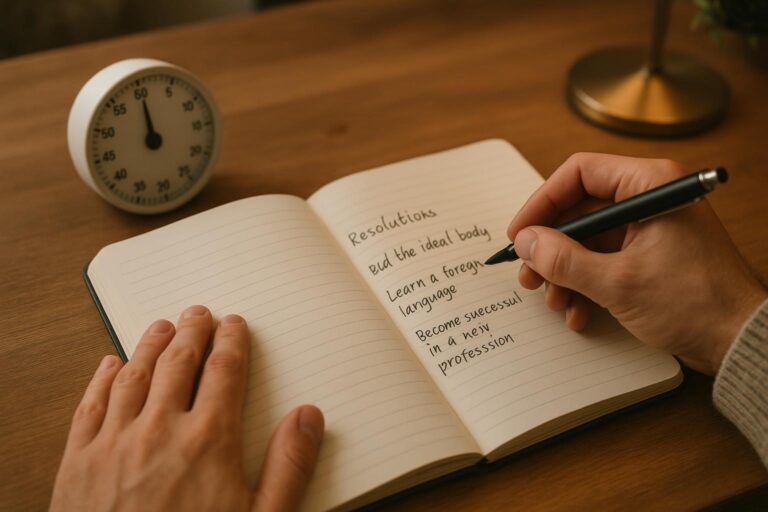 60
5
55
10
45
40
35
20
Resolutions
Bud the ideal body
Learn a foregn
language
Become suecessul
in a neiv
professsion